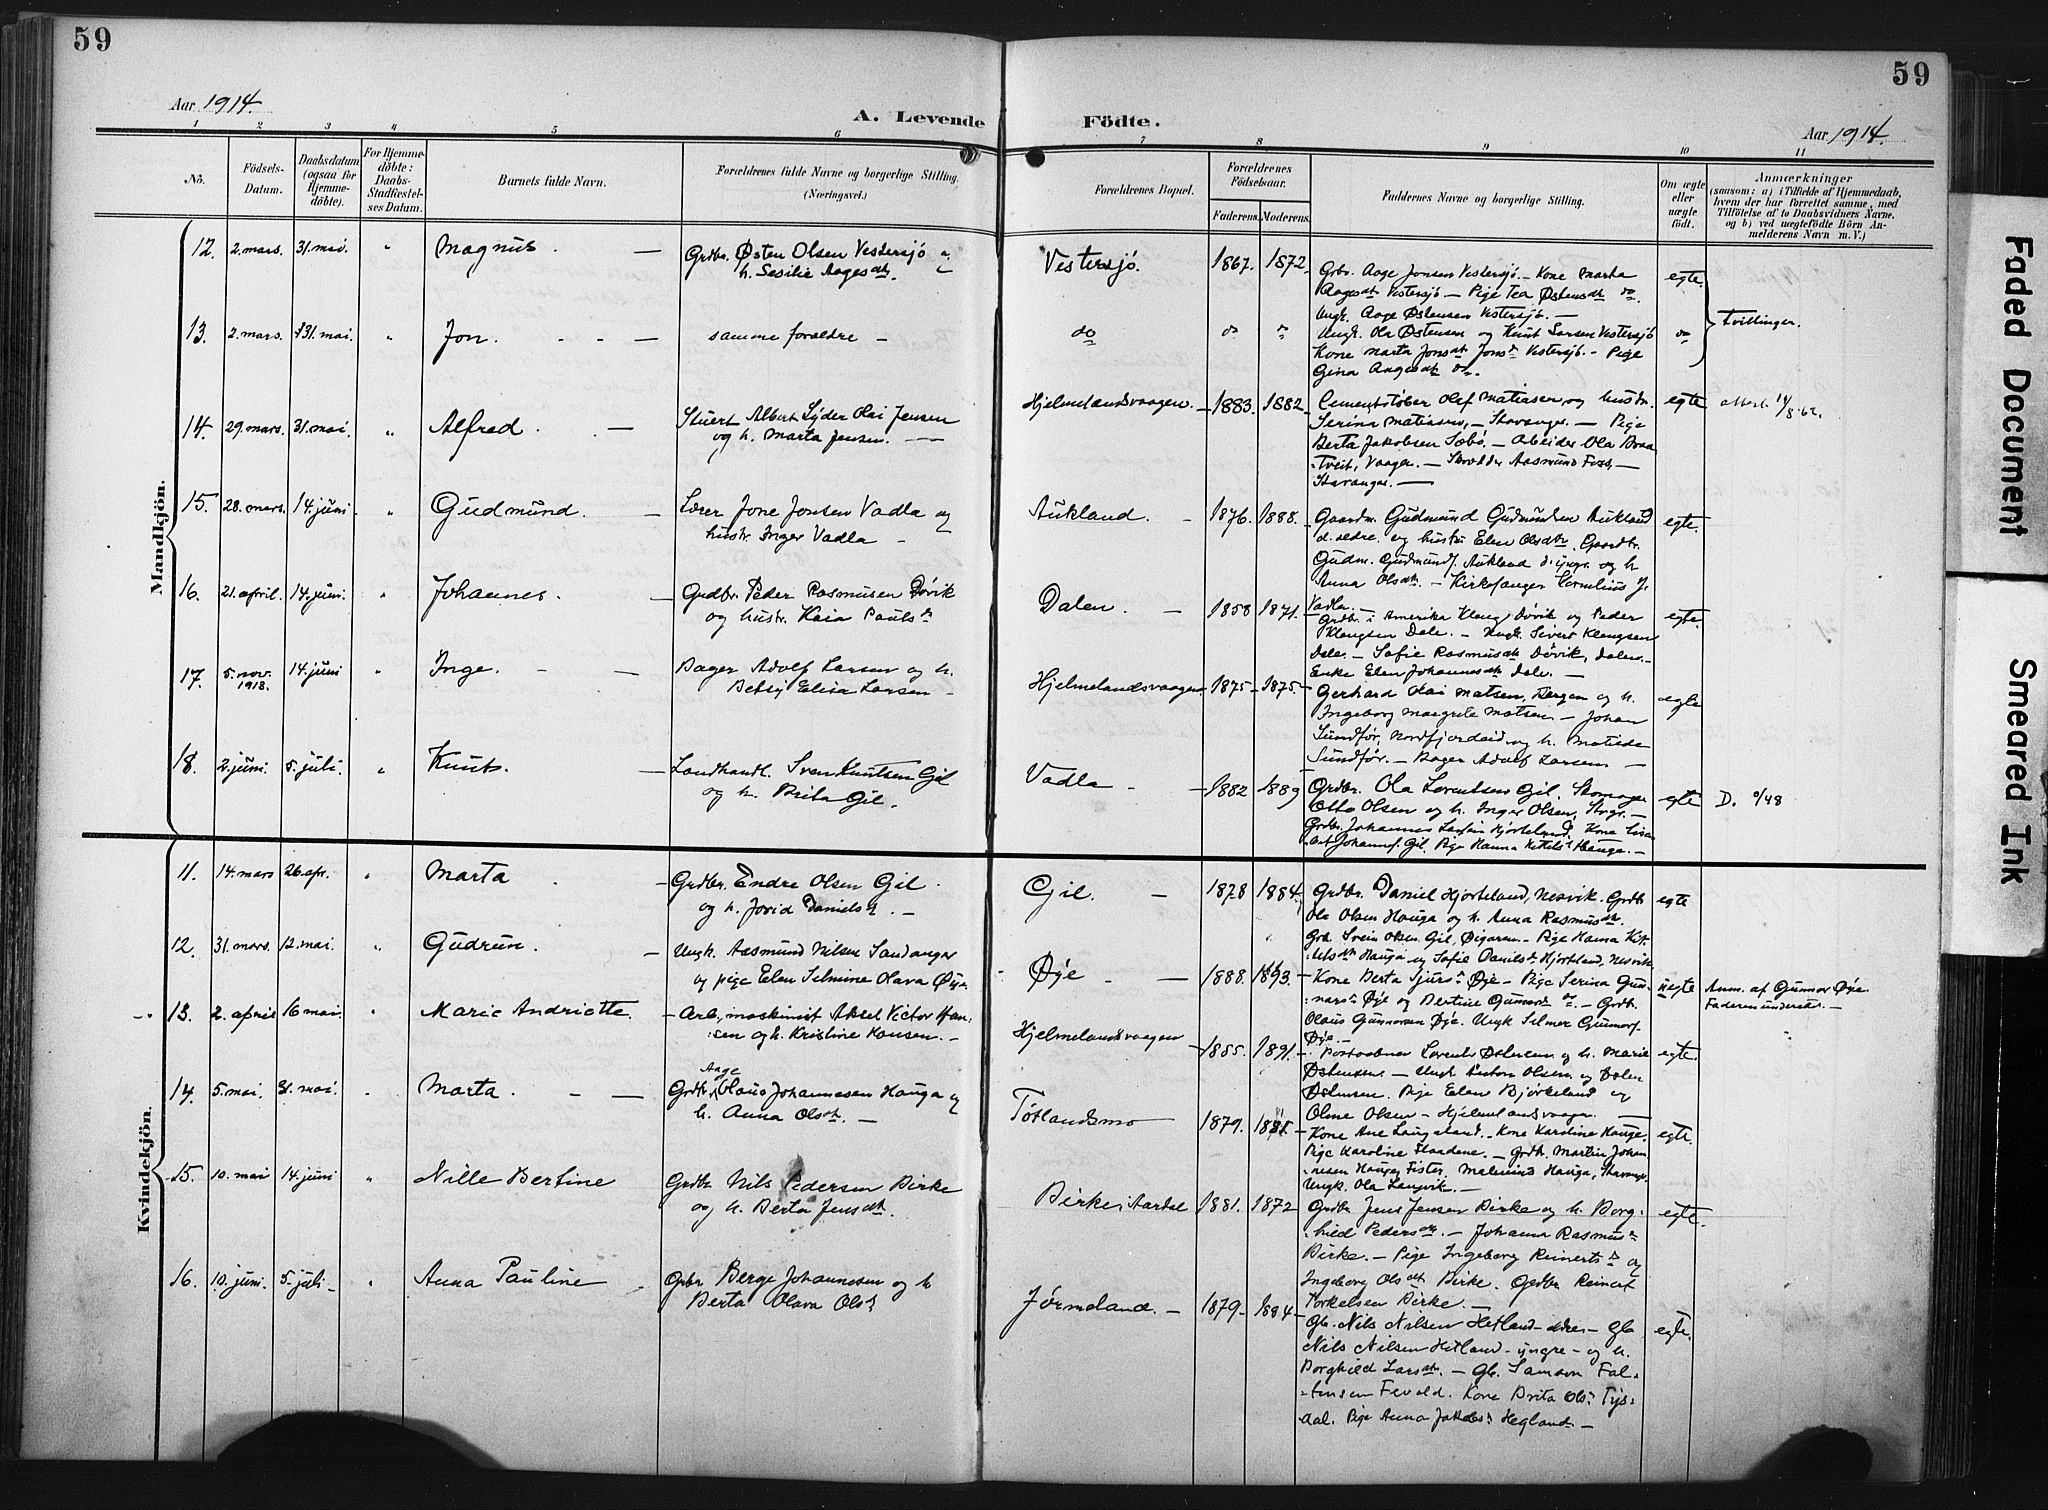 59
59
Aar 1914.
A. Levende Födte.
Aar 1914.
1 2 3 4 5 6 7 8 9 10 11
Nö.
Födsels-Datum.
Daabsdatum (ogsaa for Hjemme-döbte).
For Hjemme-döbte: Daabs-Stadfæstel-ses Datum.
Barnets fulde Navn.
Forældrenes fulde Navne og borgerlige Stilling. (Næringsvei.)
Forældrenes Bopæl.
Forældrenes Födselsaar.
Faderens. Moderens.
Faddernes Navne og borgerlige Stilling.
Om ægte eller uægte födt.
Anmærkninger
(saasom: a) i Tilfælde af Hjemmedaab, hvem der har forrettet samme, med Tilföielse af to Daabsvidners Navne. og b) ved uægtefödte Börn Anmelderens Navn m. V.)
Mandkjön.
12. 2. mars. 31. mai. " Magnus. — Grdbr. Østen Olsen Vestersjö og h. Sesilie Aagesdtr. Vestersjö. 1867. 1872. Grbr. Aage Jonsen Vestersjö. — Kone Marta
Aagesdtr Vestersjö — Pige Tea Østensdtr do.
Ungk. Aage Østensen Vestersjö. — egte
13. 2. mars. 31. mai. " Jon. — samme forældre — do do " Ungk. Ola Østensen og Knut Larsen Vestersjö
Kone Marta Jonsdtr Vestersjö. — Pige
Gina Aagesdtr do. do Tvillinger.
14. 29. mars. 31. mai. " Alfred. — Stuert Albert Sÿder Olai Jensen og h. Marta Jensen. — Hjelmelandsvaagen. 1883. 1882. Cementstöber Olaf Matiasen og hustr.
Serina Matiasen, — Stavanger. — Pige
Berta Jakobsen Sæbö. — Arbeider Ola Braa-
tveit, Vaagen. — Skrædder Aasmund Foss —
Stavanger. — egte 14/8-62.
15. 28. mars. 14. juni " Gudmund. — Lærer Jone Jonsen Vadla og hustr. Inger Vadla — Aukland. — 1876. 1888. Gaardm. Gudmund Gudmundsen Aukland
d. eldre og hustru Elen Olsdtr. Gaardbr.
Gudm. Gudmunds. Aukland d. yngr. og h
Anna Olsdtr. — Kirkesanger Cornelius J.
Vadla. — egte.
16. 21. april. 14. juni. " Johannes. — Grdbr. Peder Rasmusen Døvik og hustr. Kaia Paulsdr Dalen. — 1858 1871. Grdbr. i Amerika Klaug Døvik og Peder
Klaugsen Dale. — Ungk. Sivert Klaugsen
Dale. — Sofie Rasmusdtr Døvik, Dalen. —
Enke Elen Johannesdtr Dale. — egte.
17. 5. nov. 1913. 14. juni " Inge. — Bager Adolf Larsen og h. Betsy Elisa Larsen — Hjelmelandsvaagen 1875 — 1875. Gerhard Olai Matsen, Bergen og h.
Ingeborg Margrete Matsen — Johan
Sundför, Nordfjordeid og h. Matilde
Sundför. — Bager Adolf Larsen — egte
18. 2. juni. 5. juli. " Knut. — Landhandl. Sven Knutsen Gil og h. Brita Gil. Vadla — 1882 1889 Grdbr. Ola Lorentsen Gil,
Otto Olsen og h. Inger Olsen, Stvgr. —
Grdbr. Johannes Larsen Hjorteland, Kone
Johannes. Gil. Pige Hanna Kittelsdr Hauge. — egte D. 0/48
Kvindekjön.
11. 14. mars 26. apr. " Marta. — Grdbr. Endre Olsen Gil. og h. Jorid Danielsdr. — Gil. — 1878 1884. Grdbr. Daniel Hjorteland, Nesvik. Grdb.
Ola Olsen Hauga og h. Anna Rasmusdtr.
Grb. Svein Olsen Gil, Øigaren. — Pige Hanna Kit-
telsdtr Hauga og Sofie Danielsdr Hjorteland, Nesvik egte
12. 31. mars. 12. mai. " Gudrun. — Ungk. Aasmund Nilsen Sandanger og pige Elen Selmine Olava Øye Øye — 1888. 1893. Kone Berta Sjursdr Øye — Pige Serina Gun-
narsdr Øye og Bertine Gunarsdr do. — Grdb.
Olaus Gunnarsen Øye. Ungk Selmer Gunnars.
Øye. — uegte Anm. af Gunnar Øye.
Faderen underret. —
13. 2. april 16 mai. " Marie Andriette. Arb., maskinist Aksel Victor Han-
sen og h. Kristine Hansen. — Hjelmelandsvaagen 1855. 1891. Postaabner Lorents Østensen og h. Marie
Østensen — Ungk. Anton Olsen og
Østensen. Pige Elen Bjørkeland og
Oline Olsen — Hjelmelandsvaagen. — egte.
14. 5. mai. 31. mai. " Marta. — Grdbr. Aage Olaus Johannesen Hauga og h. Anna Olsdtr. — Tøtlandsmo 1879. 1881. Kone Ane Laugaland. Kone Karoline Hauge.
Pige Karoline Flaadene. — Grdb. Martin Johan-
nesen Hauga, Fister. Malmind Hauga, Stavanger.
Ungk. Ola Langvik. — egte.
15. 10. mai 14. juni " Nille Bertine Grdbr Nils Pedersen Birke og h. Berta Jensdtr. Birke, Aardal 1881. 1872 Grdbr Jens Jensen Birke og h. Borg-
hild Pedersdtr. — Johanna Rasmusdr
Birke. — Pige Ingeborg Reinertsdr og
Ingeborg Olsdtr Birke. Grdbr Reinert
Torkelsen Birke. — egte.
16. 10. juni. 5. juli — " Anna Pauline — Grbr Berge Johannesen og h Berta Olava Olsdr Jørmeland. — 1879. 1884. Gb. Nils Nilsen Hetland — eldre — Gb
Nils Nilsen Hetland — yngre — og h.
Borghild Larsdtr. — Gb. Samson Fal-
kensen Fevold. Kone Brita Olsdr Tys-
dal. Pige Anna Jakobsdr Hegland. — egte.
Faded Document
Smeared Ink